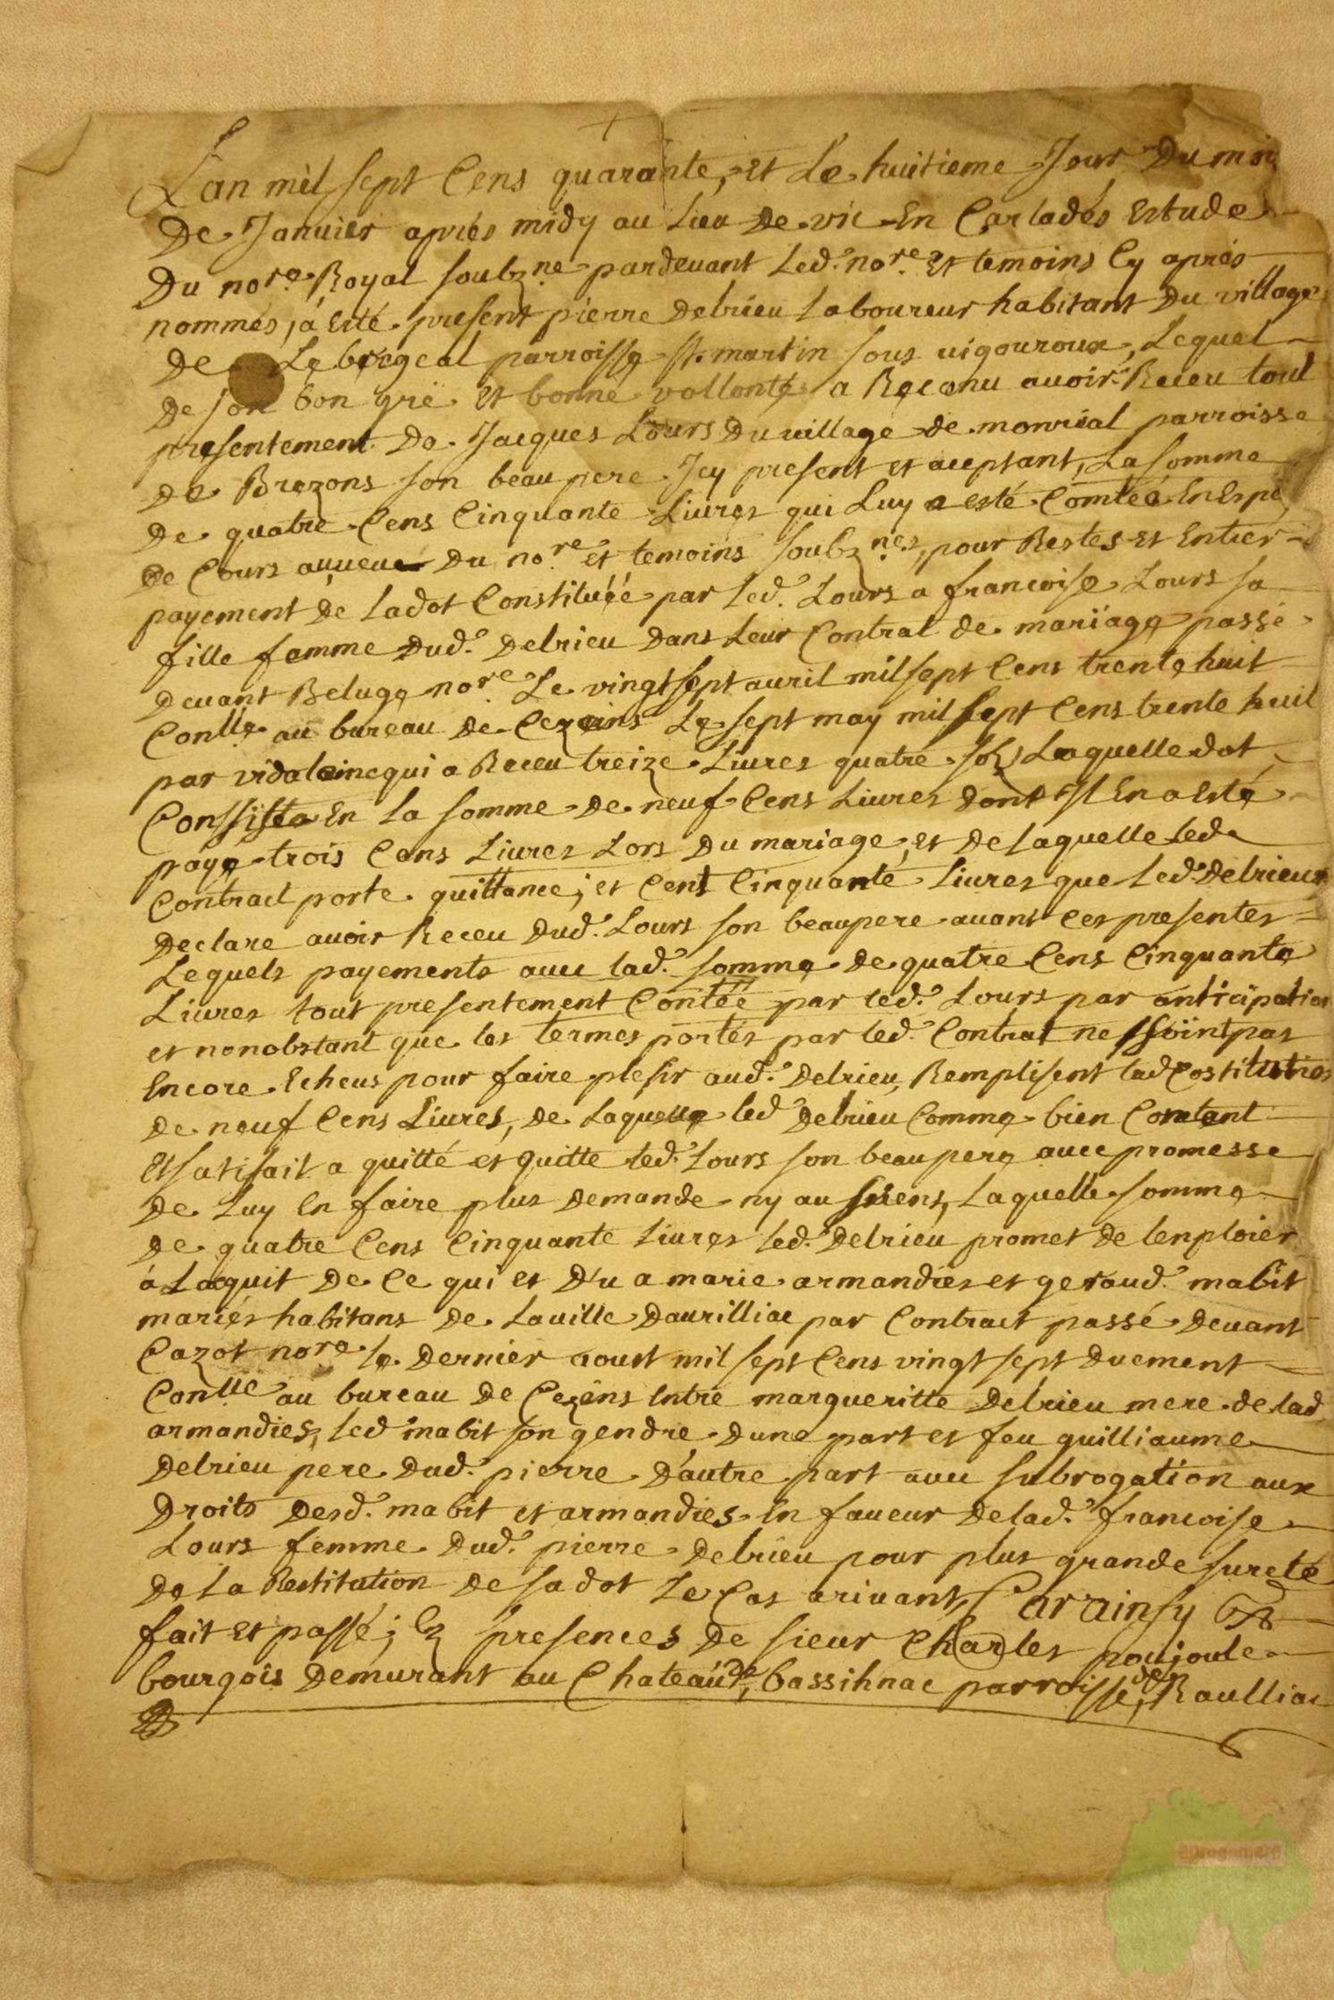 Lan mil sept Cens quarante, et Le huitieme Jour Du moi
De Januier aprés midy au Lieu De vic En Carladés Estude
Du nore. Royal soubzne pardeuant Led. nore. Et temoins Cy aprés
nommés, á Esté present pierre Delrieu Laboureur habitant Du village
De Le bergeal parroisse st. martin sous uigouroux, Lequel
De son bon gré Et bonne vollonté a Reconu auoir Receu tout
presentement De Jacques Lours Du uillage de monreal parroisse
De Brezons son beau pere Jcy present et aceptant, La somme
De quatre Cens Cinquante Liures qui Luy a esté Comtéé En Espe
De Cours auueue Du nore. et temoins soubznes, pour Restes et Entier
payement De Ladot Constituéé par Led. Lours a francoise Lours sa
fille femme Dud. Delrieu Dans Leur Contrat de mariage passé
Deuant Beluge nore Le vingt sept auril mil sept Cens trente huit
Conlle au bureau De Cezeins Le sept may mil sept Cens trente huit
par vidalainc qui a Receu treize Liures quatre solz Laquelle dot
Conssista En La somme De neuf Cens Liures Dont Jl En a Esté
paye trois Cens Liures Lors Du mariage, et De laquelle Led
Contract porte quittance; et Cent Cinquante Liures que Led. Delrieux
Declare auoir Receu Dud. Lours son beaupere auant Ces presentes
Lequels payements auec lad. somme De quatre Cens Cinquante
Liures tout presentement Contéé par led. Lours par anticipation
et nonobstant que les termes portés par led. Contrat ne ssoint pas
Encore Echeus pour faire plesir aud. Delrieu, Remplisent lad Costitution
De neuf Cens Liures, De Laquelle led Delrieu Comme bien Contant
Et satisfait a quitté et quitte led. Lours son beau pere auec promesse
De Luy En faire plus Demande ny au siens, Laquelle somme
De quatre Cens Cinquante Liures led. Delrieu promet De lenploier
á Laquit De Ce qui et D'u a marie armandies et geraud. mabit
mariés habitans De Lauille Daurilliac par Contract passé Deuant
Cazot nore le Dernier aoust mil sept Cens vingt sept Duement
Conlle au bureau De Cezéns Entre margueritte Delrieu mere de lad
armandies, led mabit son gendre Dune part et feu guilliaume
Delrieu pere Dud. pierre D'autre part auec subrogation aux
Droits Desd. mabit et armandies En faueur De lad. francoise
Lours femme Dud. pierre Delrieu pour plus grande sureté
De La Restitution De sa dot Le Cas ariuant,
fait Et passé; Ez presences De sieur Charles poujoule
bourgois Demurant au Chateau de, bassihnac parroisse, de Raulliac